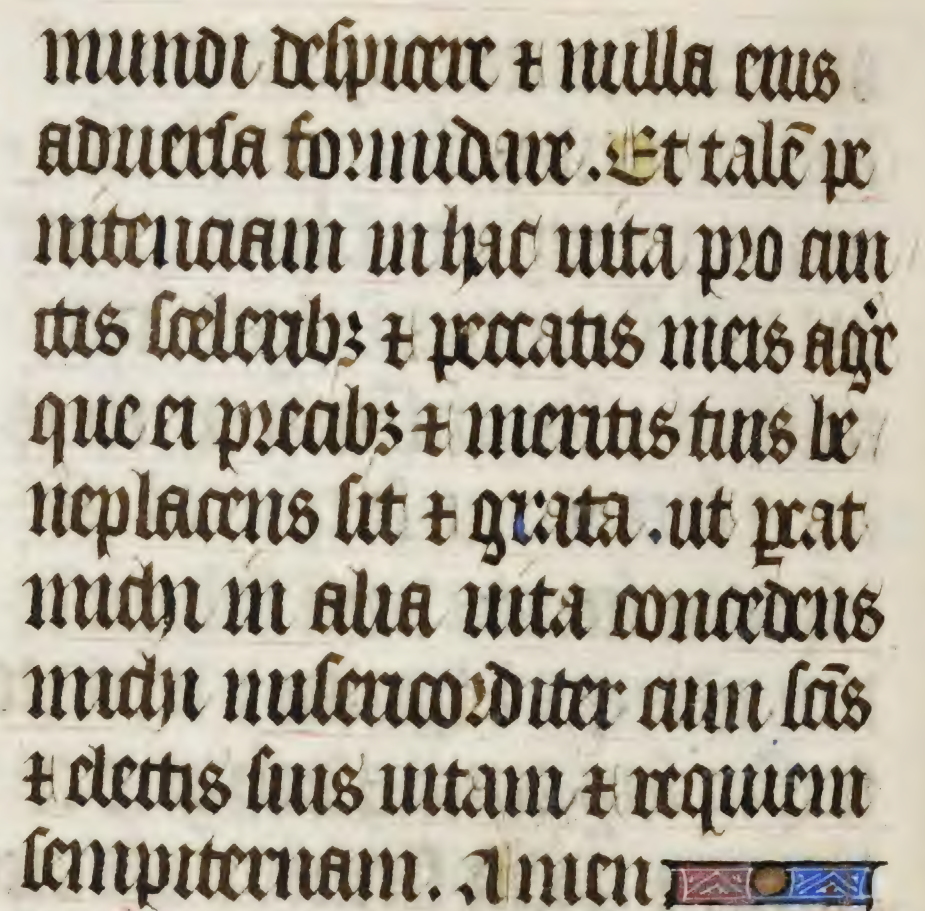 mundi despicere ⁊ nulla eius
aduersa formidare. Et talē pe
nitenciam in hac uita pro cun
ctis sceleribꝫ ⁊ peccatis meis agͥe
que ei precibꝫ ⁊ meritis tuis be
neplacens sit ⁊ grata. ut ꝑcat
michi in alia uita concedens
michi misericorditer cum scīs
⁊ electis suis uitam ⁊ requiem
sempiternam. Amen